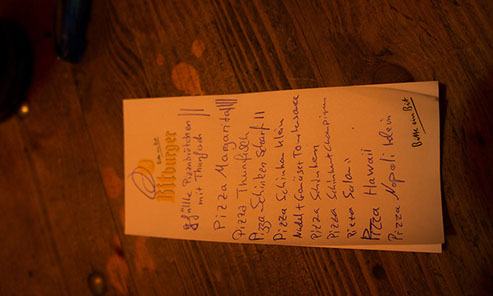 Bitte ein Bit
Bitburger
gefüllte Pizzabrötchen ||
mit Thunfisch
Pizza Margarita ||||
Pizza Thunfisch
Pizza Schinken Scharf ||
Pizza Schinken klein
Nudel + Gemüse Tomatensauce
Pizza Schinken
Pizza Schinken + Champignon
Pizza Salami
Pizza Hawaii
Pizza Napoli klein
Bitte ein Bit